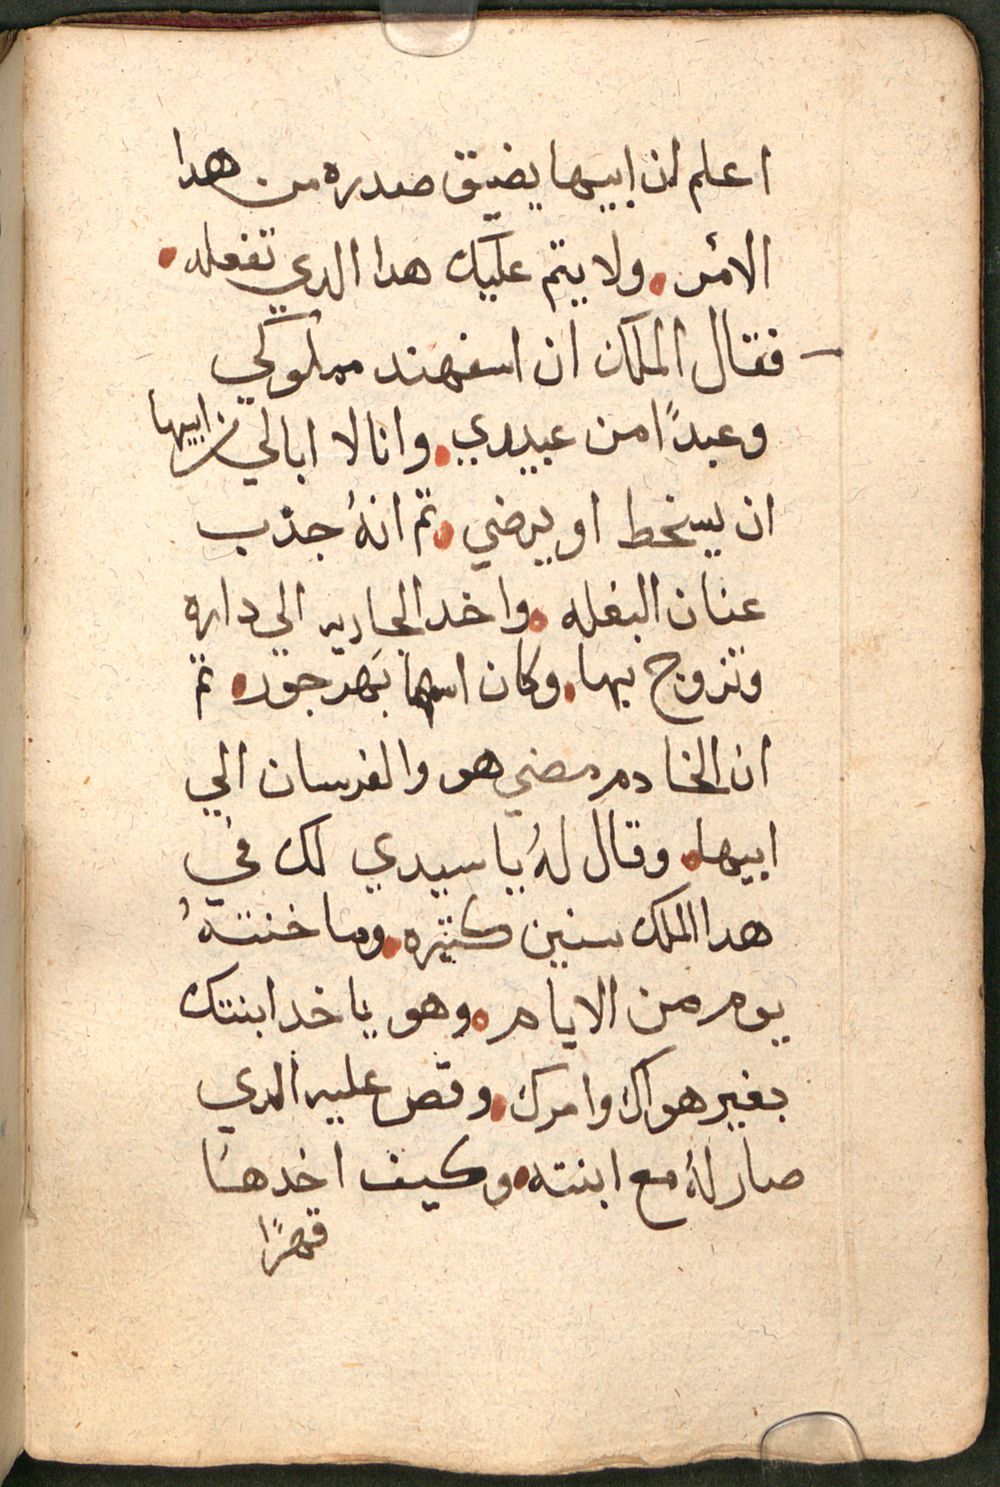 اعلم ان ابيها يضيق صدره من هدا
الامر. ولا يتم عليك هدا الدي تفعله.
فقال الملك ان اسفهند مملوكي
وعبدًا من عبيدي. وانا لا ابالي من ابيها
ان يسخط او يرضي. تم انهُ جدب
عنان البغله. واخد الجاريه الي داره
وتزوج بها. وكان اسمها بهرجور. تم
ان الخادم مضي هو والفرسان الي
ابيها. وقال لهُ يا سيدي لك في
هدا الملك سنين كتيره. وما خنتهُ
يوم من الايام. وهو ياخد ابنتك
بغير هواك وامرك. وقص عليه الدي
صار لهُ مع ابنته. وكيف اخدها
قهرًا